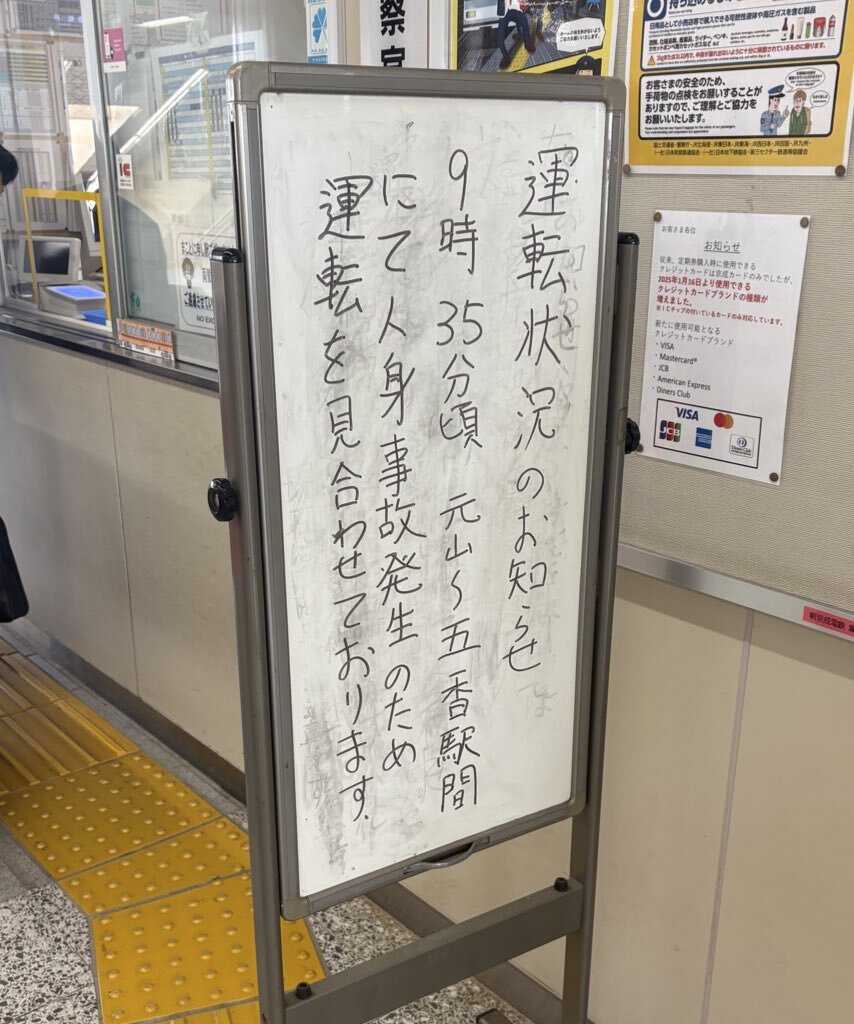 運転状況のお知らせ
9時35分頃 元山〜五香駅間
にて人身事故発生のため
運転を見合わせております.
お客さまの安全のため、
手荷物の点検をお願いすることが
ありますので、ご理解とご協力を
お願いいたします。
お客さま各位
お知らせ
従来、定期券購入時に使用できる
クレジットカードは京成カードのみでしたが、
2025年1月16日より使用できる
クレジットカードブランドの種類が
増えました。
※ICチップの付いているカードのみ対応しています。
新たに使用可能となる
クレジットカードブランド
・VISA
・Mastercard®
・JCB
・American Express
・Diners Club
VISA
JCB
新京成電鉄